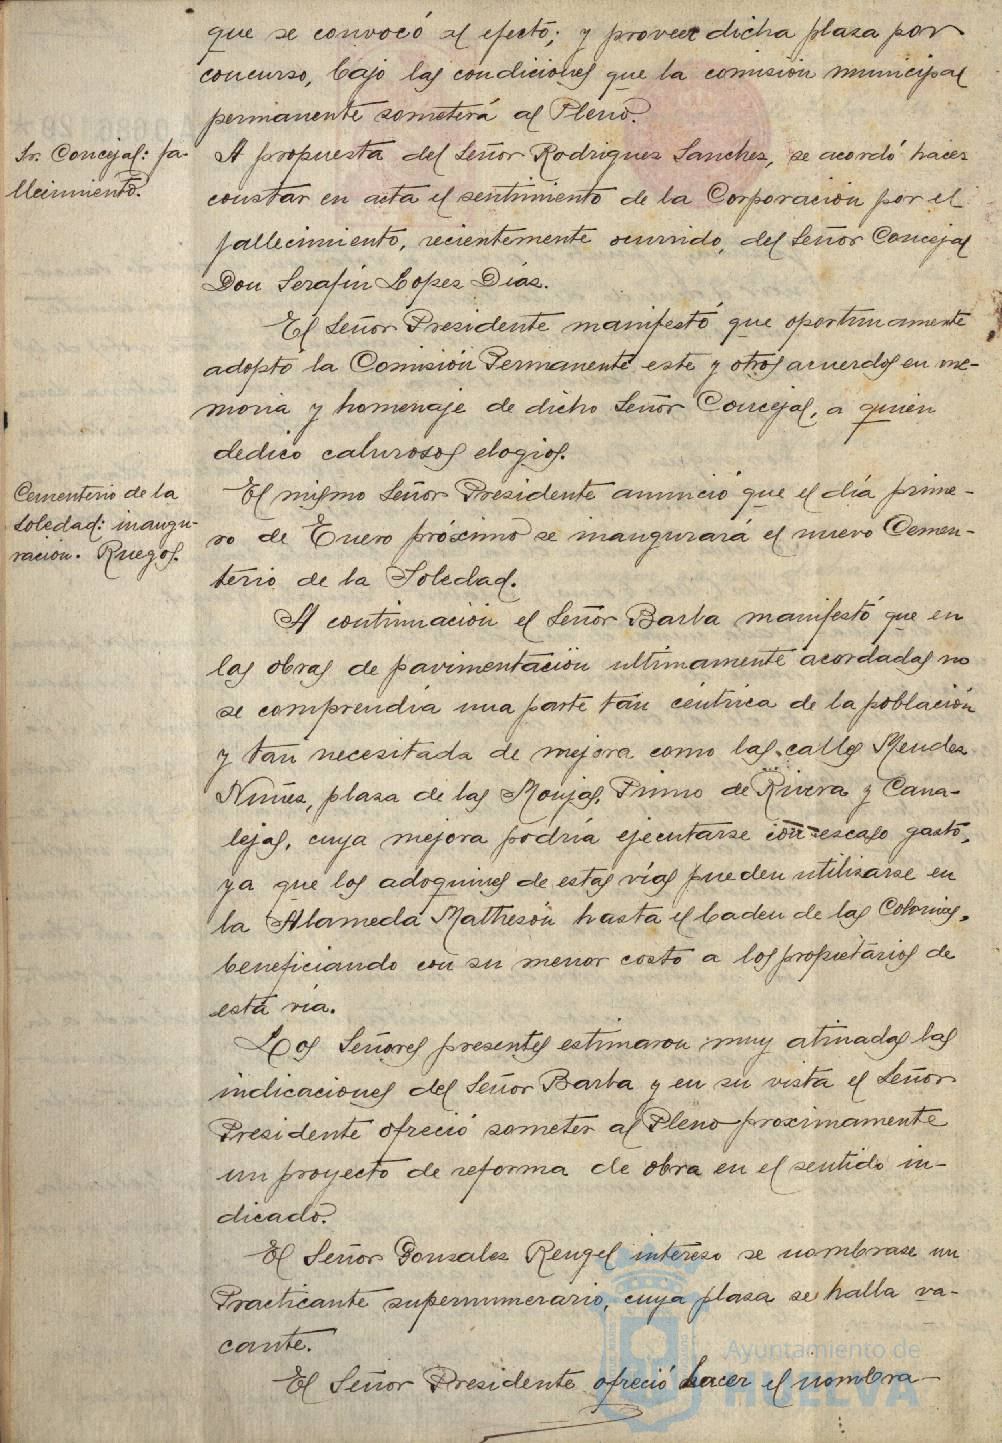 que se convocó al efecto; y proveer dicha plaza por
concurso, bajo las condiciones que la comisión municipal
permanente someterá al Pleno.
Sr. Concejal: fa-
llecimiento.
A propuesta del Señor Rodriguez Sanchez, se acordó hacer
constar en acta el sentimiento de la Corporación por el
fallecimiento, recientemente ocurrido, del Señor Concejal
Don Serafin Lopez Diaz.
El Señor Presidente manifestó que oportunamente
adoptó la Comisión Permanente este y otros acuerdos en me-
moria y homenaje de dicho Señor Concejal, a quien
dedicó calurosos elogios.
Cementerio de la
Soledad: inaugu-
ración. Ruegos.
El mismo Señor Presidente anunció que el día prime-
ro de Enero próximo se inaugurará el nuevo Cemen-
terio de la Soledad.
A continuación el Señor Barba manifestó que en
las obras de pavimentación ultimamente acordadas no
se comprendía una parte tan céntrica de la población
y tan necesitada de mejora como las calles Mendez
Nuñez, plaza de las Monjas, Primo de Rivera y Cana-
lejas, cuya mejora podría ejecutarse con escaso gasto,
ya que los adoquines de estas vías pueden utilizarse en
la Alameda Matheson hasta el baden de las Colonias,
beneficiando con su menor costo a los propietarios de
esta vía.
Los Señores presentes estimaron muy atinadas las
indicaciones del Señor Barba y en su vista el Señor
Presidente ofreció someter al Pleno proximamente
un proyecto de reforma de obra en el sentido in-
dicado.
El Señor Gonzalez Rengel interesó se nombrase un
Practicante supernumerario, cuya plaza se halla va-
cante.
El Señor Presidente ofreció hacer el nombra-
Ayuntamiento de
HUELVA